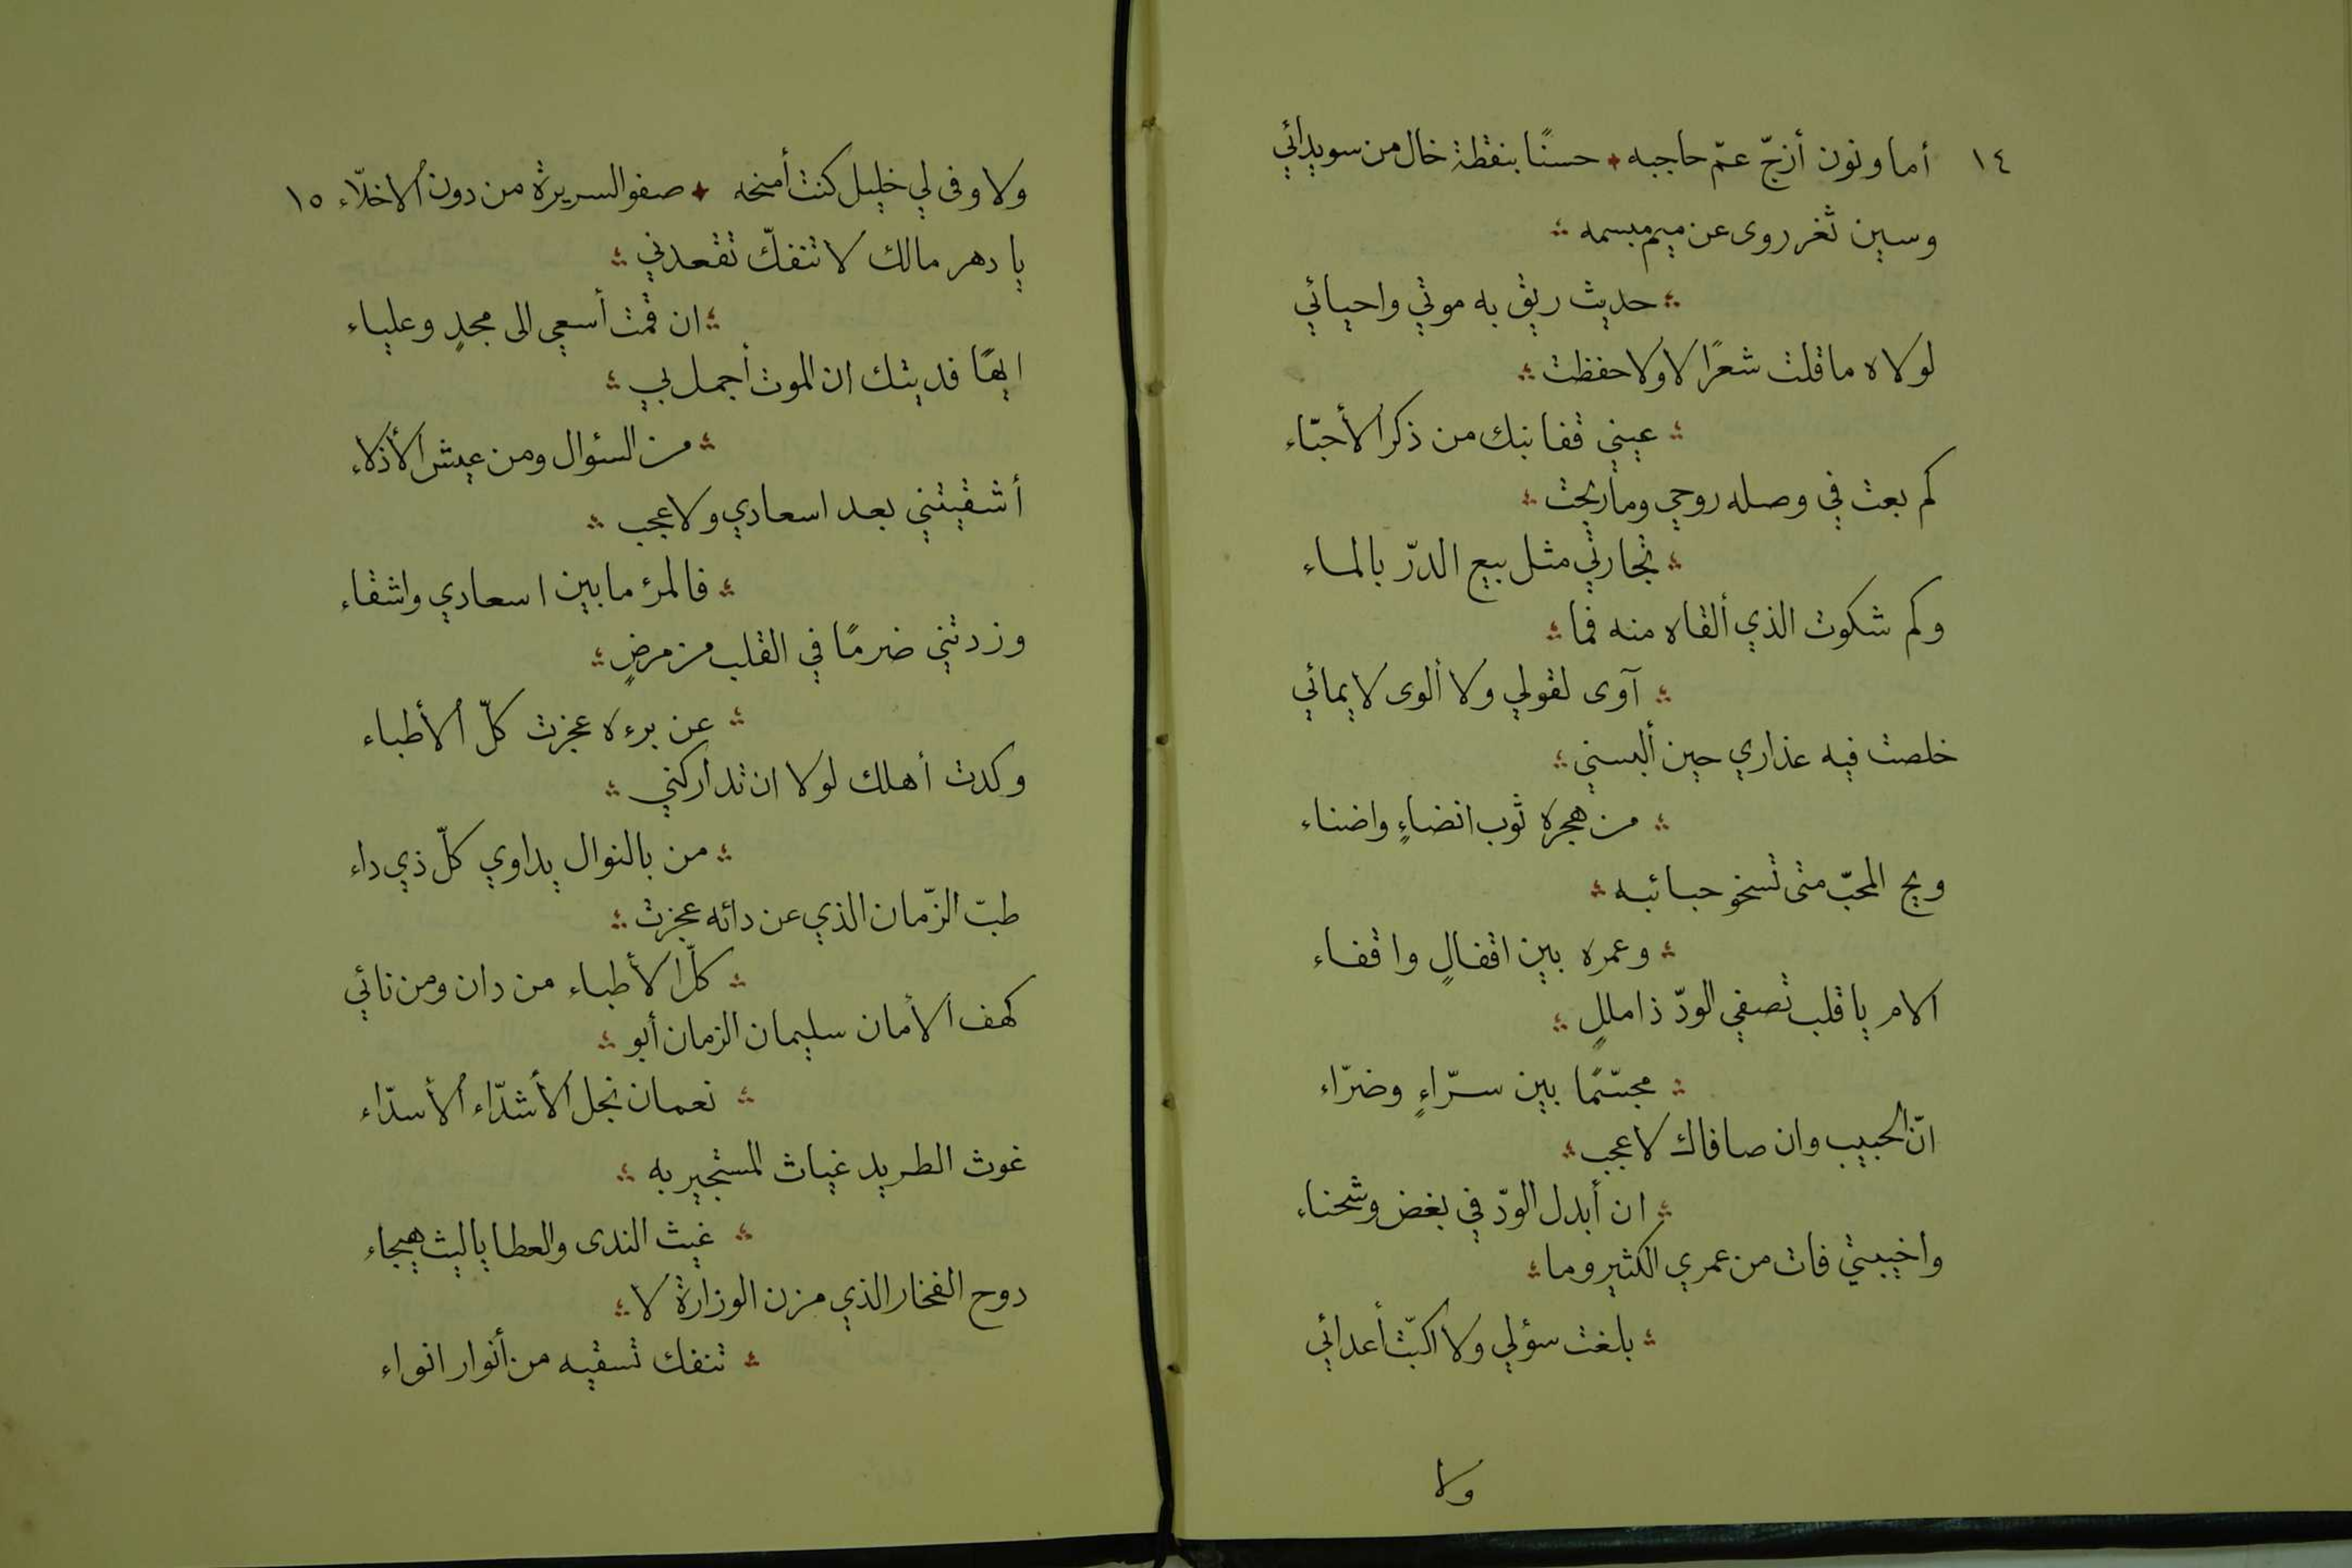 ١٤
أما ونون أزجّ عمّ حاجبه حسنًا بنقطة خال من سويدائي
وسين ثغر روى عن ميم مبسمه
حديث ريق به موتي واحيائي
لولاه ما قلت شعرًا لا ولا حفظت
عيني قفا نبك من ذكر الأحبّاء
كم بعت في وصله روحي وما ربحت
تجارتي مثل بيع الدرّ بالماء
وكم شكوت الذي ألقاه منه فما
آوى لقولي ولا ألوى لايمائي
خلصت فيه عذاري حين ألبسني
من هجره ثوب انضاءٍ واضناء
ويح المحبّ متى تسخو حبائبه
وعمره بين اقفالٍ واقفاء
الام يا قلب تصفي الودّ ذا مللٍ
مجسّمًا بين سرّاءٍ وضرّاء
انّ الحبيب وان صافاك لا عجب
ان أبدل الودّ في بغض وشحناء
واخيبتي فات من عمري الكثير وما
بلغت سؤلي ولا اكبّت أعدائي
ولا
ولا وفى لي خليل كنت أمنحه صفو السريرة من دون الاخلّاء ١٥
يا دهر مالك لا تنفكّ تقعدني
ان قمت أسعي الى مجدٍ وعلياء
ايهًا فديتك ان الموت أجمل بي
من السؤال ومن عيش الأذلاء
أشقيتني بعد اسعادي ولا عجب
فالمرؤ ما بين اسعادي واشقاء
وزدتني ضرمًا في القلب من مرضٍ
عن برءه عجزت كلّ الأطباء
وكدت أهلك لولا ان تداركني
من بالنوال يداوي كلّ ذي داء
طبّ الزّمان الذي عن دائه عجزت
كلّ الأطباء من دان ومن نائي
كهف الأمان سليمان الزمان أبو
نعمان نجل الأشدّاء الأسدّاء
غوث الطريد غياث المستجير به
غيث الندى والعطا يا ليث هيجاء
دوح الفخار الذي مزن الوزارة لا
تنفك تسقيه من أنوار انواء